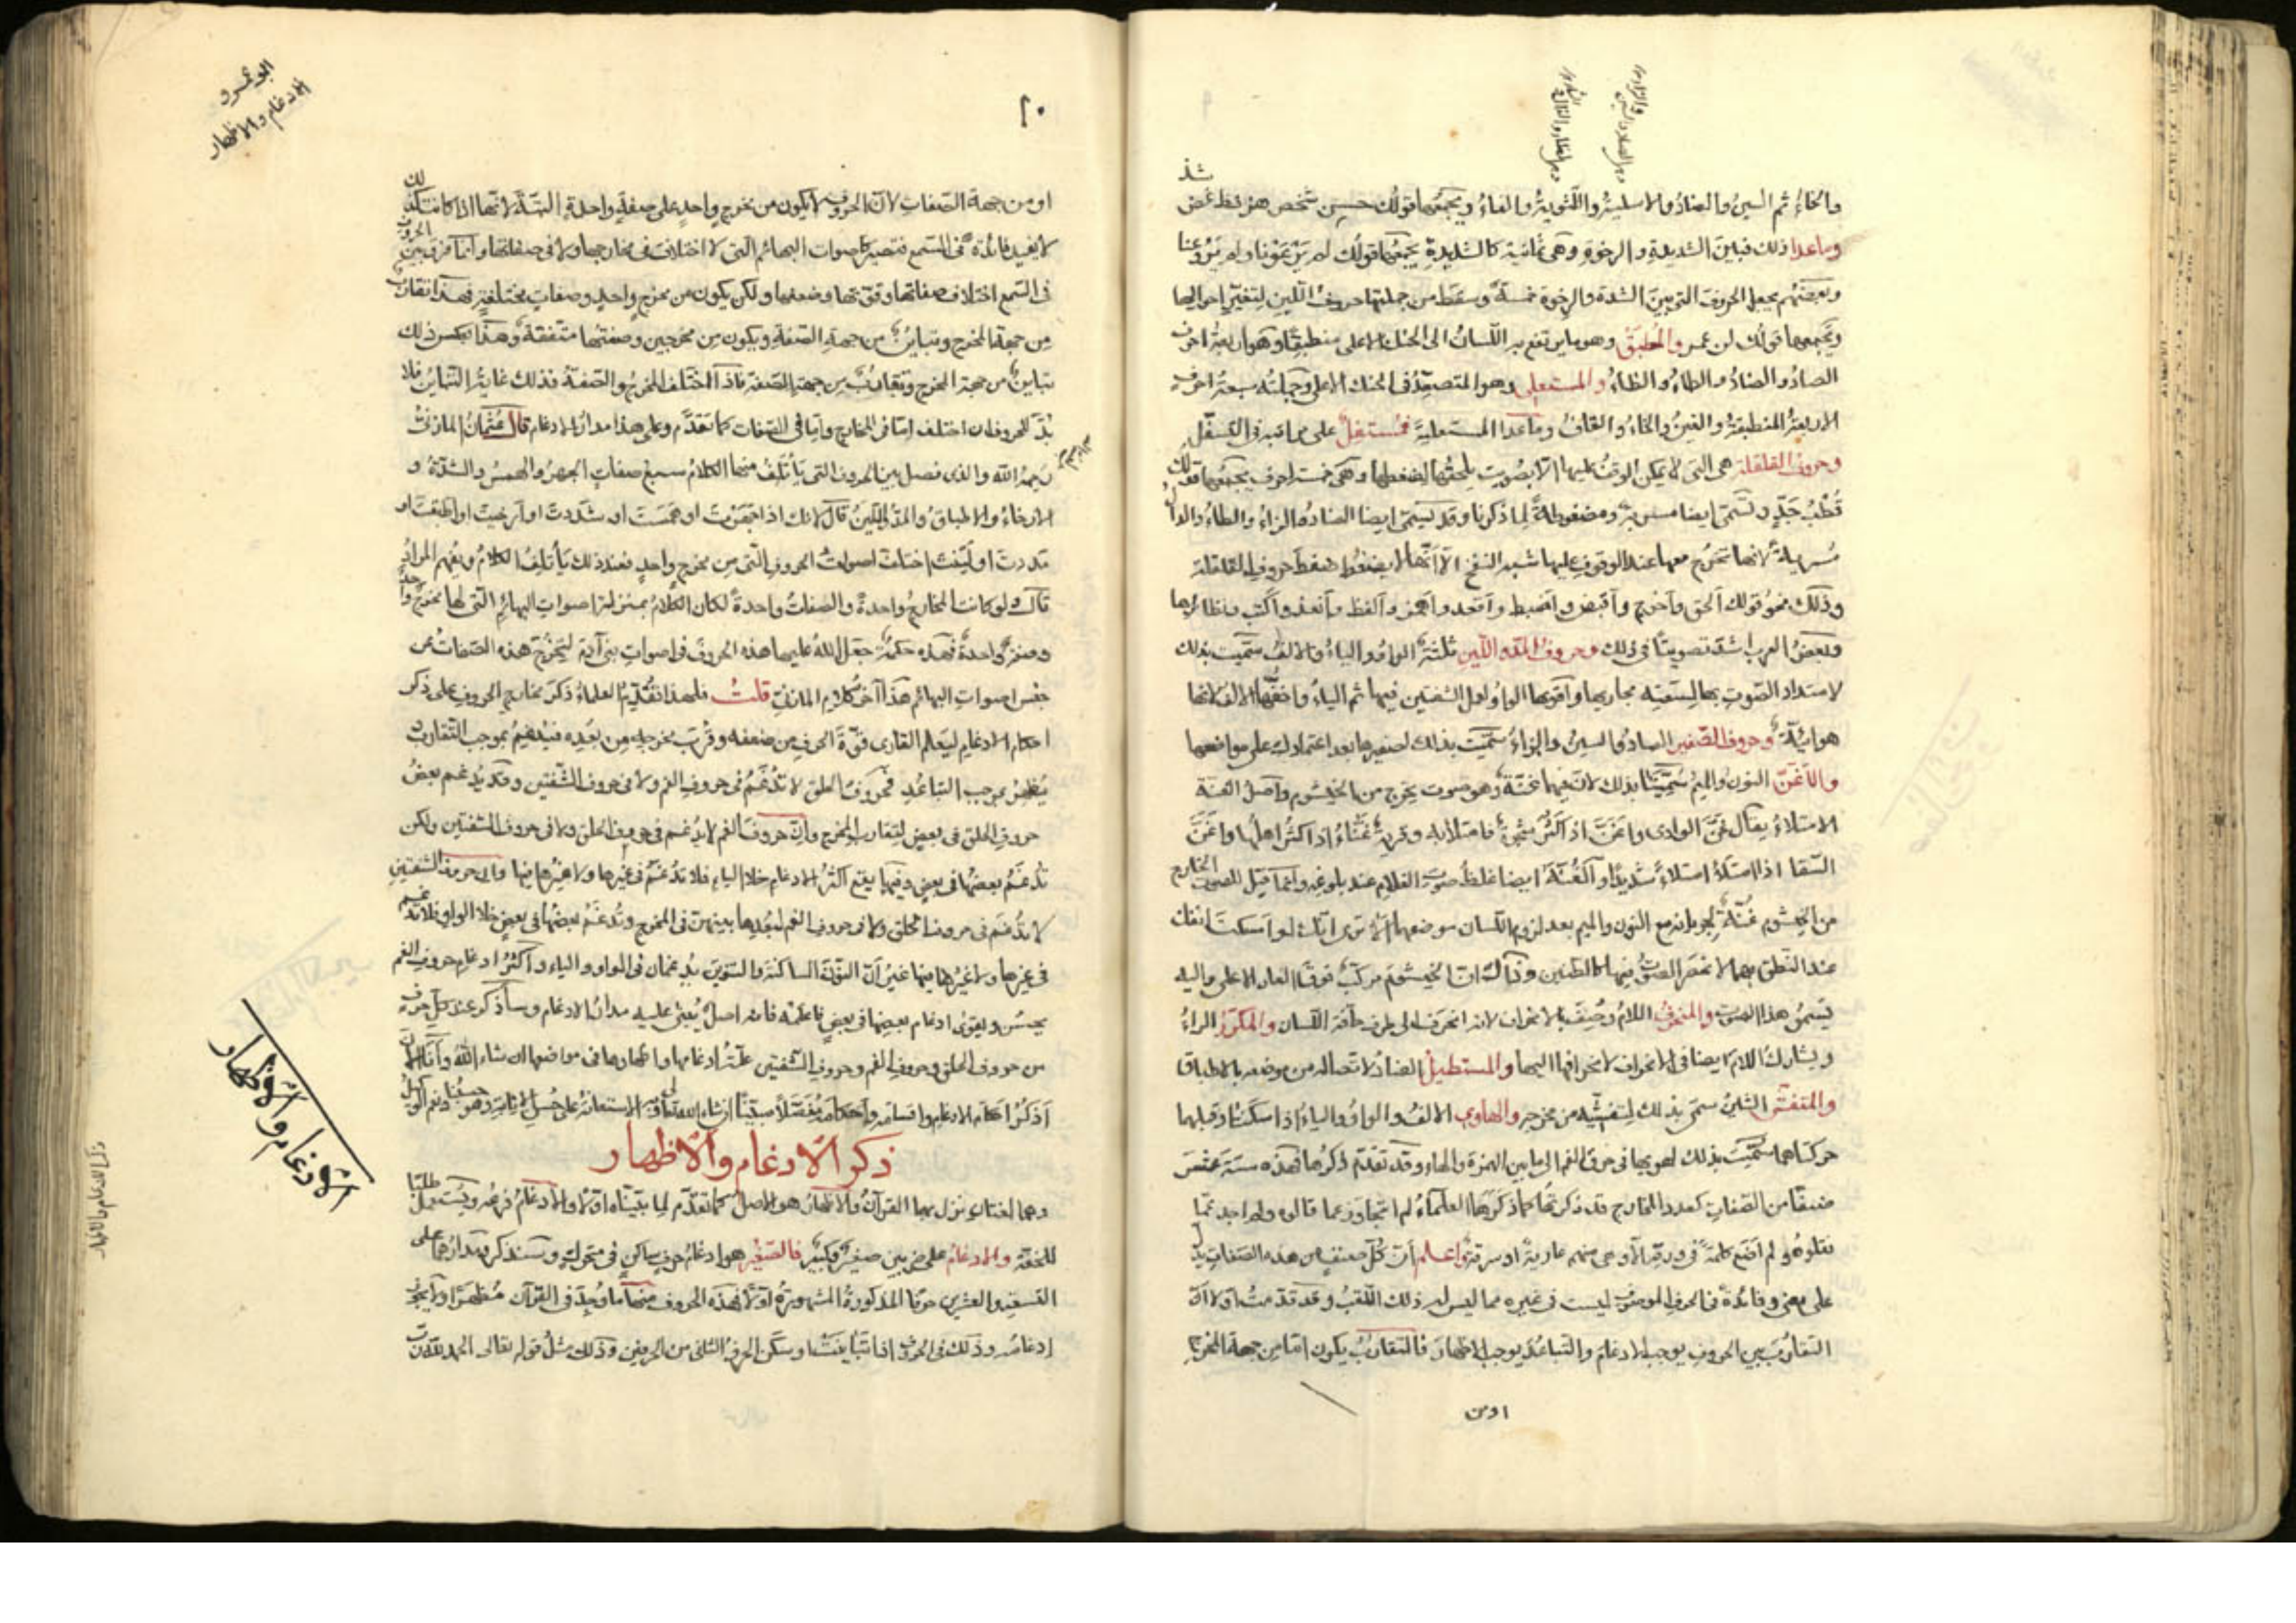 والخاءُ ثم السين والصادُ والاسلية واللثوية والفاءُ ويجمعها قولك حسين شخص هز فظ غض
وماعدا ذلك فبين الشديدة والرخوة وهى ثمانية كالشديدة يجمعها قولك لم يرعونا ولم يروعنا
وبعضهم يجعل الحروف التى بين الشدة والرخوة خمسة وسقط من جملتها حروف اللين لتغير احوالها
ويجمعها قولك لن عمر والمطبق وهو ما يرتفع به اللسان الى الحنك الاعلى منطبقا وهو اربعة احرف
الصاد والضاد والطاء والظاء والمستعلى وهو المتصعد فى الحنك الاعلى وجملته سبعة احرف
الاربعة المنطبقة والغين والخاء والقاف وماعدا المستعلية فمستفل على مراتبه فى التسفل
وحروف القلقلة هى التى لا يمكن الوقف عليها الا بصويت يلحقها لضغطها وهى خمسة احرف يجمعها قولك
قطب جد وتسمى ايضا مشربة ومضغوطة لما ذكرنا وقد تسمى ايضا الضاد والزاء والظاء والذال
مشربة لانها تخرج معها عند الوقوف عليها شبه النفخ الا انها لم يضغط ضغط حروف القلقلة
وذلك نحو قولك الحق واخرج واقبض واضبط واقعد واهمز والفظ وانفذ واكتب ونظائرها
وبعض العرب اشد تصويتا فى ذلك وحروف المد واللين ثلثة الواو والياء والالف سميت بذلك
لامتداد الصوت بها لسعة مجاريها واقوها الواو لعمل الشفتين فيها ثم الياء واخفها الالف لانها
هوائية وحروف الصفير الصاد والسين والزاء سميت بذلك لصفيرها بعد اعتمادك على مواضعها
والاغن النون والميم سميتا بذلك لان فيهما غنة وهو صوت يخرج من الخيشوم واصل الغنة
الامتلاء يقال غن الوادى واغن اذا كثر شجره فامتلأ به وقرية غناء اذا كثر اهلها واغن
السقا اذا امتلأ امتلاء شديدا والغنة ايضا غلظ صوت الغلام عند بلوغه وانما قيل للصوت الخارج
من الخيشوم غنة لجريانه مع النون والميم بعد لزوم اللسان موضعهما الا ترى انك لو امسكت انفك
عند النطق بهما لانحصر الصوت فيهما كالطنين وذاك ان الخيشوم مركب فوق الغار الاعلى واليه
يسمو هذا الصوت والمنحرف اللام وصف بالانحراف لانه انحرف الى طرف حافة اللسان والمكرر الراء
ويشارك اللام ايضا فى الانحراف لانحرافها اليها والمستطيل الضاد لاتصاله من موضعه بالاطباق
والمتفشى الشين سمى بذلك لتفشيه من مخرجه والهاوى الالف والواو والياء اذا سكنتا وقبلهما
حركتاهما سميت بذلك لهويها فى خرق الفم الى ما بين الهمزة والهاء وقد تقدم ذكرها فهذه ستة عشر
صنفا من الصفات كعدد المخارج قد ذكرتها كما ذكرها العلماء لم اتجاوز عما قالوه ولم اجد عما
نقلوه ولم اضع كلمة فى ورقة الا وهى منهم عارية او سرقة واعلم ان كل صنف من هذه الصفات يدل
على معنى وفائدة فى الحرف الموصوف ليست فى غيره مما ليس له ذلك اللقب وقد قدمت اولا ان
التقارب بين الحروف يوجب الادغام والتباعد يوجب الاظهار فالتقارب يكون اما من جهة المخرج
او من
ابو عمرو
الادغام والاظهار
١٠
او من جهة الصفات لان الحروف لا يكون من مخرج واحد على صفة واحدة البتة لانها اذا كانت كذلك
لا يفيد فائدة فى السمع فتصير كاصوات البهائم التى لا اختلاف فى مخارجها ولا فى صفاتها وانما فرق بين الحروف
فى السمع اختلاف صفاتها وقوتها وضعفها ولكن يكون من مخرج واحد وصفات مختلفة فهذا تقارب
من جهة المخرج وتباين من جهة الصفة ويكون من مخرجين وصفتها متفقة وهذا بعكس ذلك
تباين من جهة المخرج وتقارب من جهة الصفة فاذا اختلف المخرج والصفة فذلك غاية التباين فلا
بد للحروف ان اختلف اما فى المخارج واما فى الصفات كما تقدم وعلى هذا مدار الادغام قال عثمان المازنى
رحمه الله والذى فصل بين الحروف التى يأتلف منها الكلام سبع صفات الجهر والهمس والشدة و
الارخاء والاطباق والمد واللين قال لانك اذا جهرت او همست او شددت او ارخيت او اطبقت او
مددت او لينت اختلف اصوات الحروف التى من مخرج واحد فعند ذلك يأتلف الكلام ويفهم المراد
قال ولو كانت المخارج واحدة والصفات واحدة لكان الكلام بمنزلة اصوات البهائم التى لها مخرج واحد
وصفة واحدة فهذه حكمة جعل الله عليها هذه الحروف فى اصوات بنى آدم ليخرج هذه الصفات عن
جنس اصوات البهائم هذا آخر كلام المازنى قلت فلهذا تقديم العلماء ذكر مخارج الحروف على ذكر
احكام الادغام ليعلم القارى قوة الحرف من ضعفه وقرب مخرجه من بعده فيدغم بموجب التقارب
يظهر بموجب التباعد فحروف الحلق لا تدغم فى حروف الفم ولا فى حروف الشفتين وقد يدغم بعض
حروف الحلق فى بعض لتقارب المخرج وان حروف الفم لا تدغم فى حروف الحلق ولا فى حروف الشفتين ولكن
تدغم بعضها فى بعض وفيها يقع اكثر الادغام خلا الياء فلا تدغم فى غيرها ولا غيرها فيها وان حروف الشفتين
لا تدغم فى حروف الحلق ولا فى حروف الفم لبعدها بينهن فى المخرج وتدغم بعضها فى بعض خلا الواو فلا تدغم
فى غيرها ولا غيرها فيها غير ان النون الساكنة والتنوين يدغمان فى الواو والياء واكثر ادغام حروف الفم
يحسن ويقوى ادغام بعضها فى بعض فاعلمه فانه اصل يبنى عليه مدار الادغام وسأذكر عند كل حرف
من حروف الحلق وحروف الفم وحروف الشفتين علة ادغامها واظهارها فى مواضعها ان شاء الله وانا الآن
اذكر احكام الادغام واقسامه واحكامه مفصلا مبينا ان شاء الله تعالى وبه الاستعانة على حسن الابانة وهو حسبنا ونعم الوكيل
ذكر الادغام والاظهار
وهما لغتان نزل بهما القرآن والاظهار هو الاصل كما تقدم لما بيناه اولا والادغام فرعه ويستعمل طلبا
للخفة والادغام على ضربين صغير وكبير فالصغير هو ادغام حرف ساكن فى متحرك وسنذكر مدارها على
التسعة والعشرين حرفا المذكورة المشهورة اولا فهذه الحروف منها ما وجد فى القرآن مظهرا ولا يجوز
ادغامه وذلك فى الحروف اذا تباينتا وسكن الحرف الثانى من الحرفين وذلك مثل قوله تعالى الحمد لله رب
الادغام والاظهار